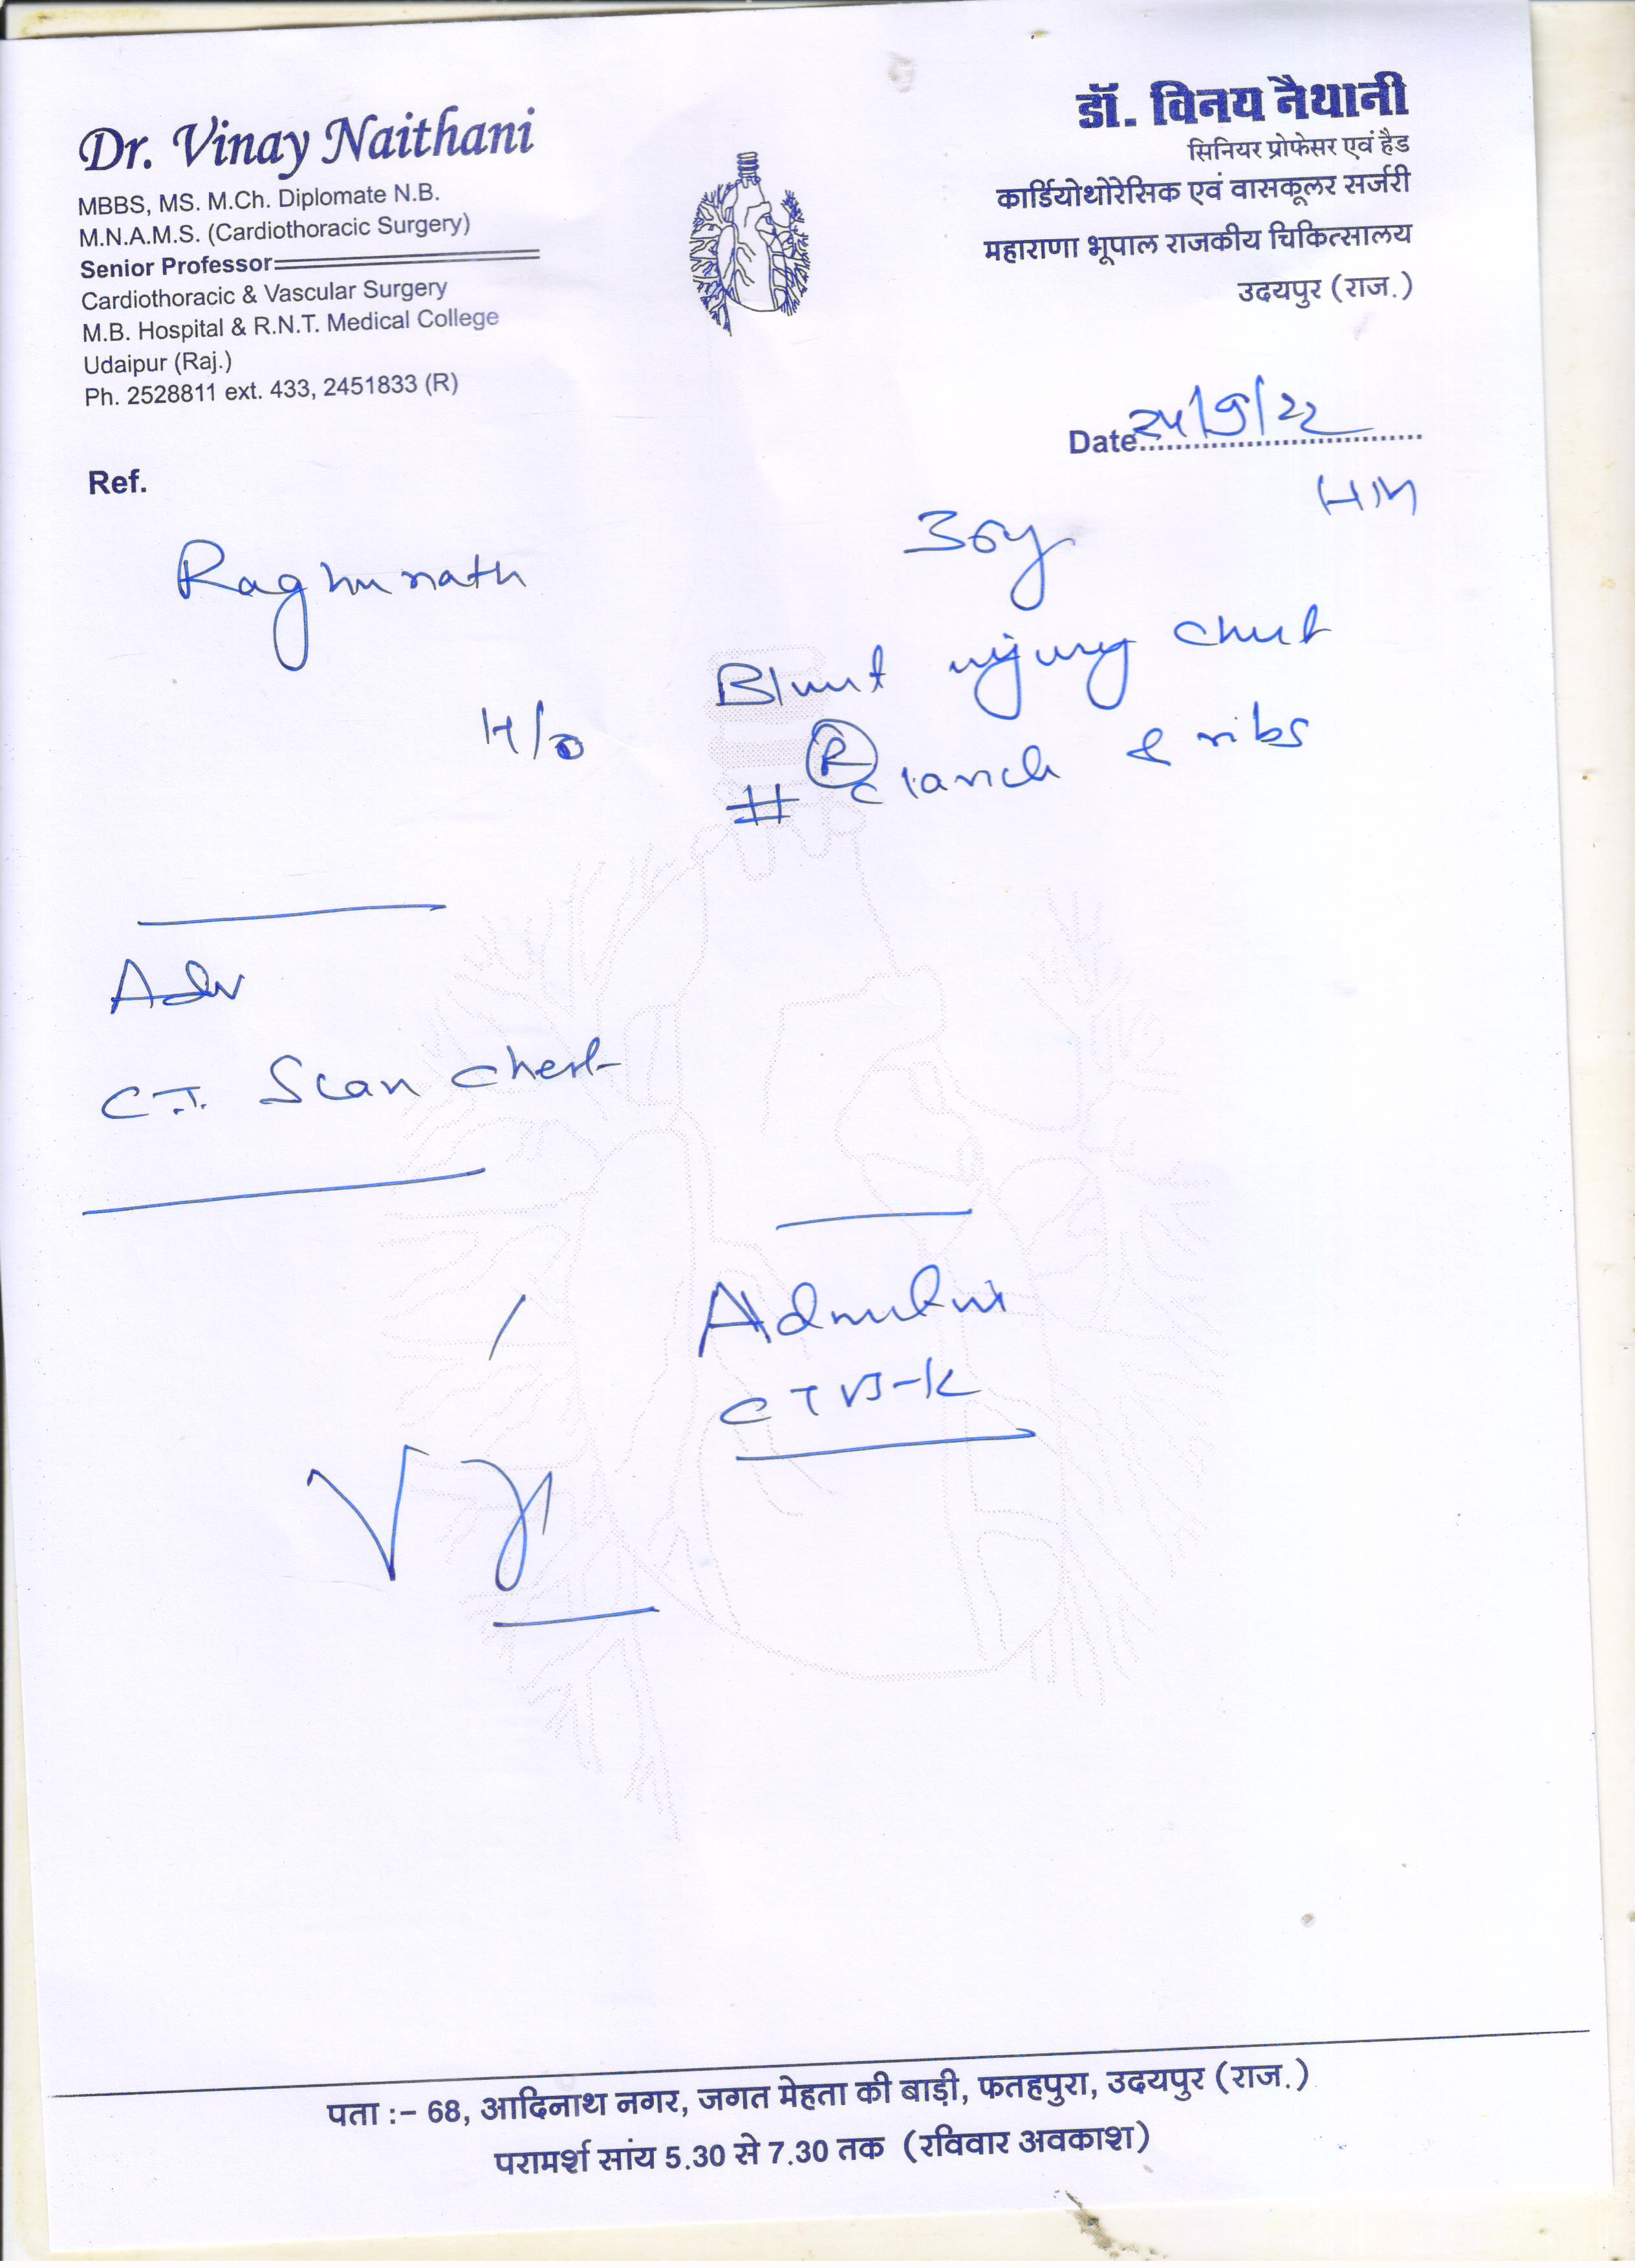 Dr. Vinay Naithani
MBBS, MS. M.Ch. Diplomate N.B.
M.N.A.M.S. (Cardiothoracic Surgery)
Senior Professor
Cardiothoracic & Vascular Surgery
M.B. Hospital & R.N.T. Medical College
Udaipur (Raj.)
Ph. 2528811 ext. 433, 2451833 (R)
डॉ. विनय नैथानी
सिनियर प्रोफेसर एवं हैड
कार्डियोथोरेसिक एवं वासकूलर सर्जरी
महाराणा भूपाल राजकीय चिकित्सालय
उदयपुर (राज.)
Date 24/9/22
Ref.
Raghunath
36y
H/o
Blunt injury chest
# R & ribs
Adv
C.T. Scan Chest
पता :– 68, आदिनाथ नगर, जगत मेहता की बाड़ी, फतहपुरा, उदयपुर (राज.)
परामर्श सांय 5.30 से 7.30 तक (रविवार अवकाश)